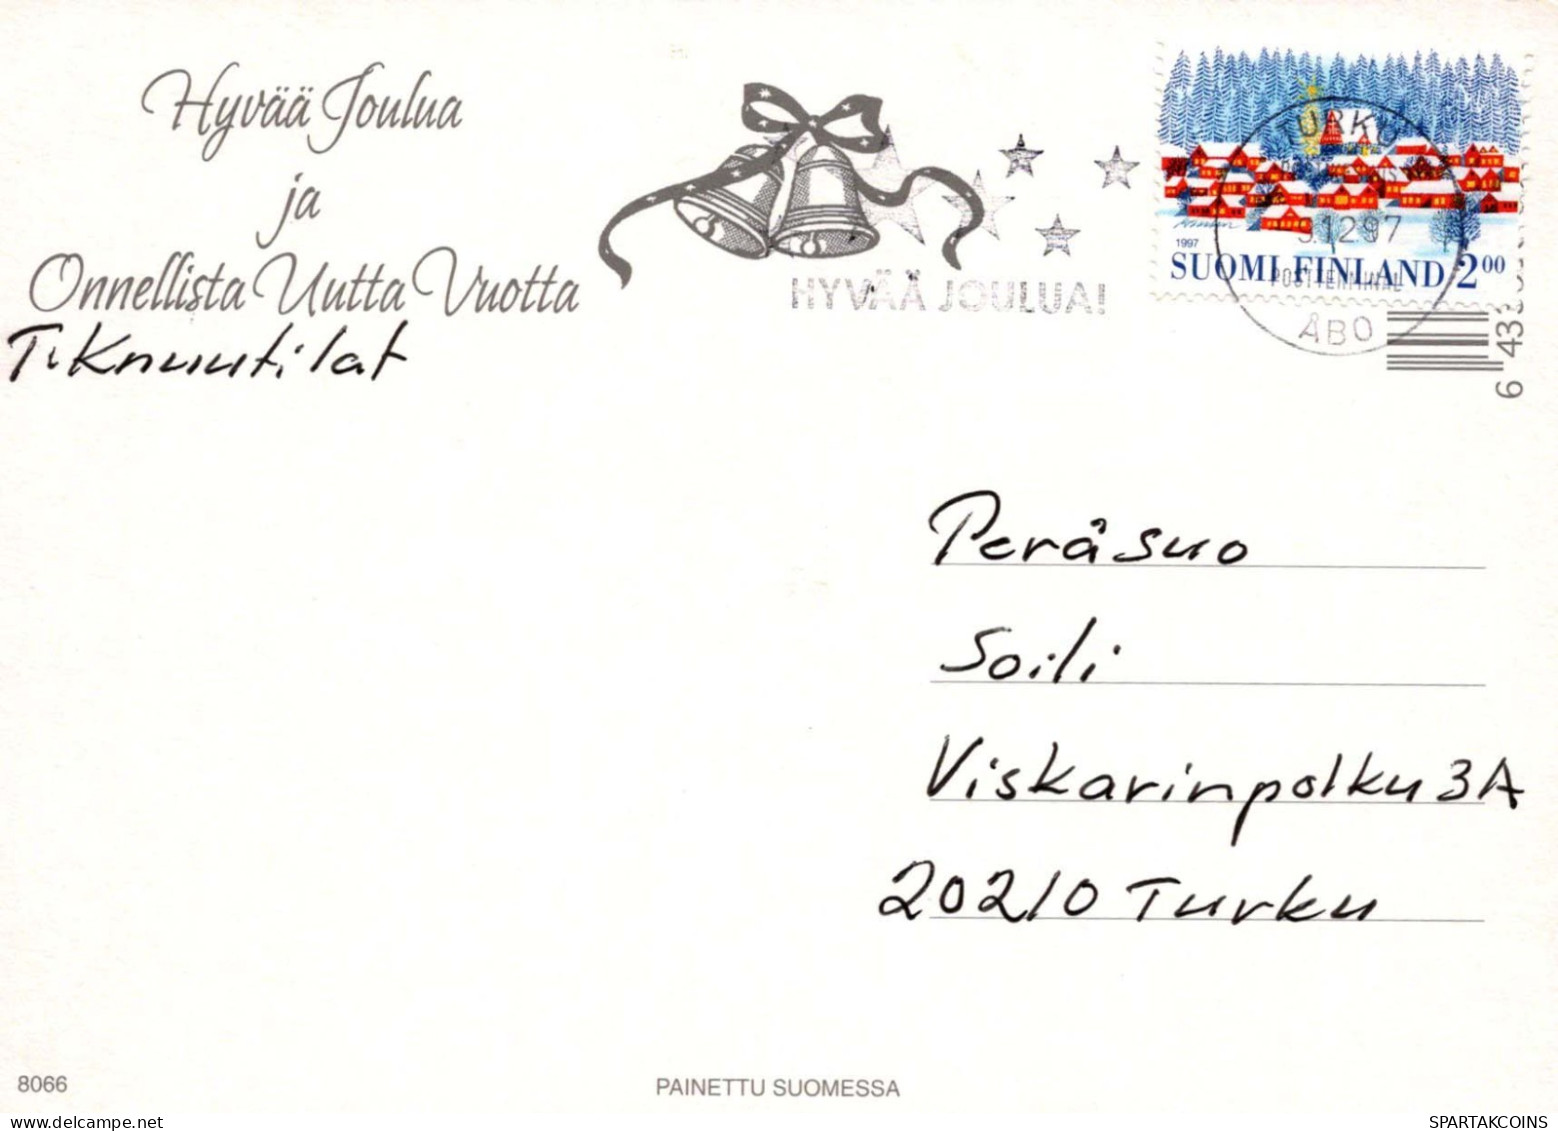 Hyvää Joulua
ja
Onnellista Uutta Vuotta
T. Knuutilat
HYVÄÄ JOULUA!
TURKU
12.97
POSTTERMINAL
ÅBO
1997
SUOMI FINLAND 2 00
6 433
Peräsuo
Soili
Viskarinpolku 3A
20210 Turku
8066
PAINETTU SUOMESSA
SPARTAKCOINS